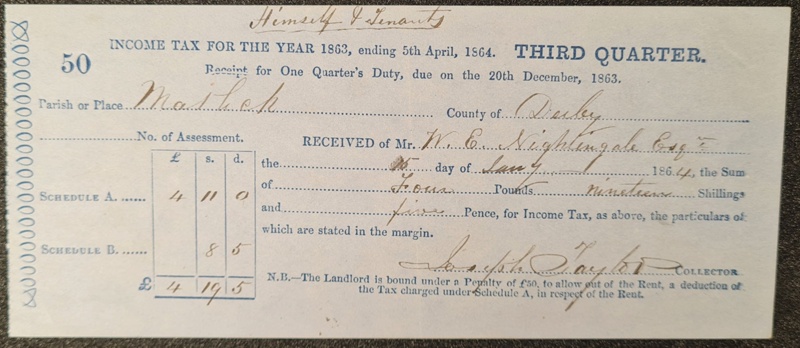 Himself & Tenants
50
INCOME TAX FOR THE YEAR 1863, ending 5th April, 1864. THIRD QUARTER.
Receipt for One Quarter's Duty, due on the 20th December, 1863.
Parish or Place Matlock County of Derby
No. of Assessment.
RECEIVED of Mr. W. E. Nightingale Esqre
the 15 day of Jany 1864, the Sum
of Four Pounds nineteen Shillings
and five Pence, for Income Tax, as above, the particulars of
which are stated in the margin.
£ s. d.
SCHEDULE A. 4 11 0
SCHEDULE B. 8 5
£ 4 19 5
Joseph Taylor COLLECTOR
N.B.—The Landlord is bound under a Penalty of £50, to allow out of the Rent, a deduction of
the Tax charged under Schedule A, in respect of the Rent.